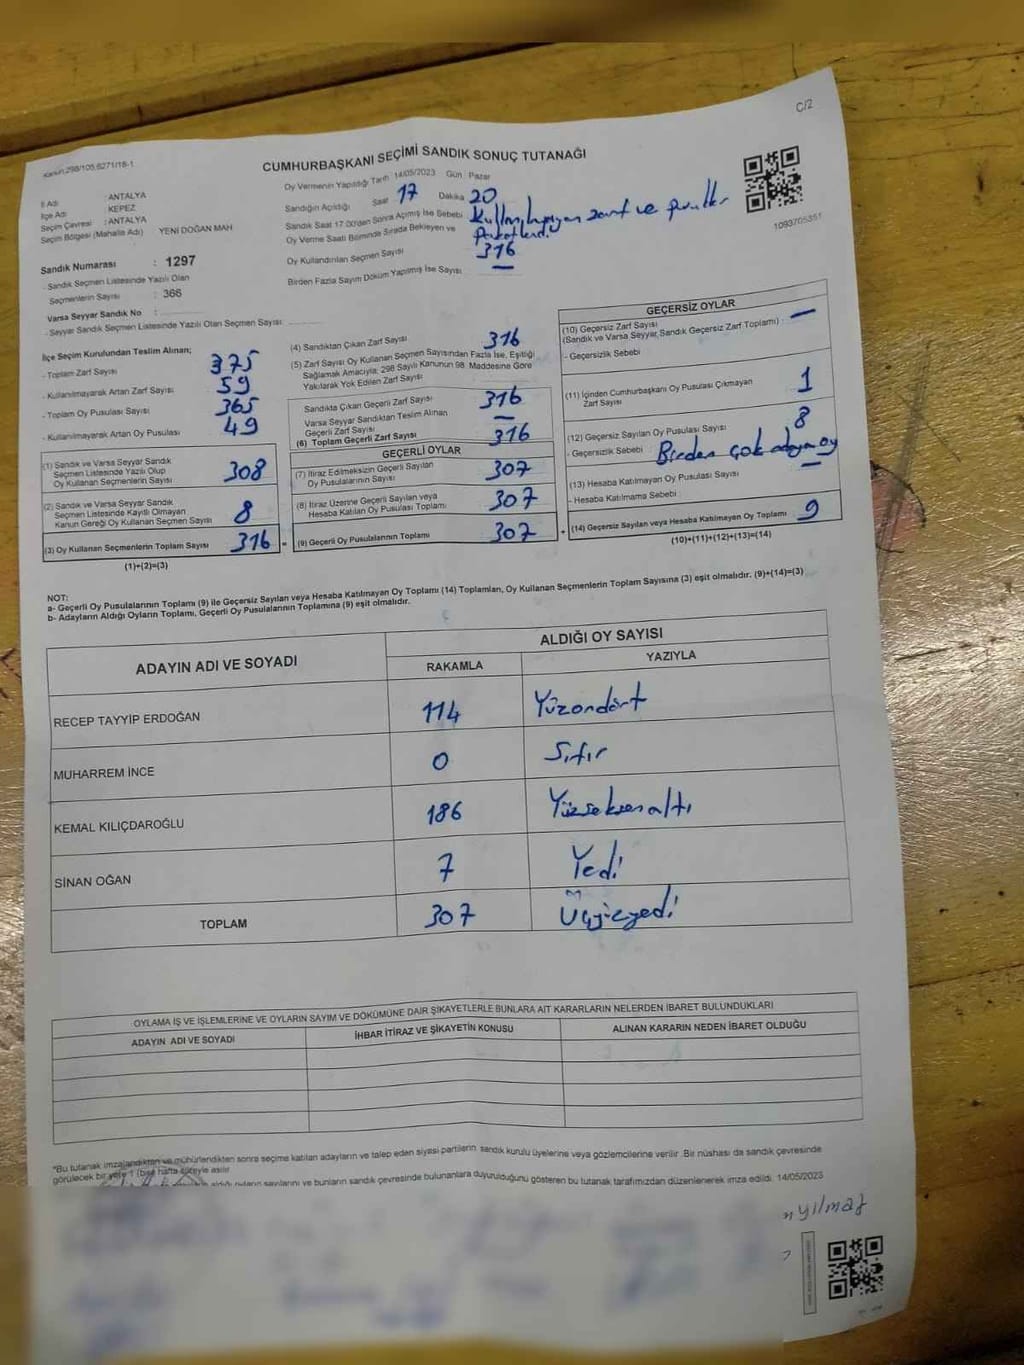 C/2
Kanun:298/105,6271/18-1
CUMHURBAŞKANI SEÇİMİ SANDIK SONUÇ TUTANAĞI
İl Adı : ANTALYA
İlçe Adı : KEPEZ
Seçim Çevresi : ANTALYA
Seçim Bölgesi (Mahalle Adı) YENİ DOĞAN MAH
Oy Vermenin Yapıldığı Tarih 14/05/2023 Gün Pazar
Sandığın Açıldığı Saat 17 Dakika 20
Sandık Saat 17.00'den Sonra Açılmış İse Sebebi Kullanılmayan zarf ve pusulalar
Oy Verme Saati Bitiminde Sırada Bekleyen ve Paketlendi
Oy Kullandırılan Seçmen Sayısı 316
Birden Fazla Sayım Döküm Yapılmış İse Sayısı —
1093705351
Sandık Numarası : 1297
- Sandık Seçmen Listesinde Yazılı Olan
Seçmenlerin Sayısı : 366
Varsa Seyyar Sandık No :
- Seyyar Sandık Seçmen Listesinde Yazılı Olan Seçmen Sayısı:
İlçe Seçim Kurulundan Teslim Alınan;
- Toplam Zarf Sayısı 375
- Kullanılmayarak Artan Zarf Sayısı 59
- Toplam Oy Pusulası Sayısı 365
- Kullanılmayarak Artan Oy Pusulası 49
(1) Sandık ve Varsa Seyyar Sandık
Seçmen Listesinde Yazılı Olup
Oy Kullanan Seçmenlerin Sayısı 308
(2) Sandık ve Varsa Seyyar Sandık
Seçmen Listesinde Kayıtlı Olmayan
Kanun Gereği Oy Kullanan Seçmen Sayısı 8
(3) Oy Kullanan Seçmenlerin Toplam Sayısı 316 =
(1)+(2)=(3)
(4) Sandıktan Çıkan Zarf Sayısı 316
(5) Zarf Sayısı Oy Kullanan Seçmen Sayısından Fazla İse, Eşitliği
Sağlamak Amacıyla; 298 Sayılı Kanunun 98. Maddesine Göre
Yakılarak Yok Edilen Zarf Sayısı
Sandıkta Çıkan Geçerli Zarf Sayısı 316
Varsa Seyyar Sandıktan Teslim Alınan
Geçerli Zarf Sayısı —
(6) Toplam Geçerli Zarf Sayısı 316
GEÇERLİ OYLAR
(7) İtiraz Edilmeksizin Geçerli Sayılan
Oy Pusulalarının Sayısı 307
(8) İtiraz Üzerine Geçerli Sayılan veya
Hesaba Katılan Oy Pusulası Toplamı 307
(9) Geçerli Oy Pusulalarının Toplamı 307 +
GEÇERSİZ OYLAR
(10) Geçersiz Zarf Sayısı
(Sandık ve Varsa Seyyar Sandık Geçersiz Zarf Toplamı) : —
- Geçersizlik Sebebi
(11) İçinden Cumhurbaşkanı Oy Pusulası Çıkmayan
Zarf Sayısı 1
(12) Geçersiz Sayılan Oy Pusulası Sayısı 8
- Geçersizlik Sebebi Birden çok adaya oy
(13) Hesaba Katılmayan Oy Pusulası Sayısı —
- Hesaba Katılmama Sebebi
(14) Geçersiz Sayılan veya Hesaba Katılmayan Oy Toplamı 9
(10)+(11)+(12)+(13)=(14)
NOT:
a- Geçerli Oy Pusulalarının Toplamı (9) ile Geçersiz Sayılan veya Hesaba Katılmayan Oy Toplamı (14) Toplamları, Oy Kullanan Seçmenlerin Toplam Sayısına (3) eşit olmalıdır. (9)+(14)=(3)
b- Adayların Aldığı Oyların Toplamı, Geçerli Oy Pusulalarının Toplamına (9) eşit olmalıdır.
ADAYIN ADI VE SOYADI ALDIĞI OY SAYISI
RAKAMLA YAZIYLA
RECEP TAYYİP ERDOĞAN 114 Yüzondört
MUHARREM İNCE 0 Sıfır
KEMAL KILIÇDAROĞLU 186 Yüzseksenaltı
SİNAN OĞAN 7 Yedi
TOPLAM 307 Üçyüzyedi
OYLAMA İŞ VE İŞLEMLERİNE VE OYLARIN SAYIM VE DÖKÜMÜNE DAİR ŞİKAYETLERLE BUNLARA AİT KARARLARIN NELERDEN İBARET BULUNDUKLARI
ADAYIN ADI VE SOYADI İHBAR İTİRAZ VE ŞİKAYETİN KONUSU ALINAN KARARIN NEDEN İBARET OLDUĞU
*Bu tutanak imzalandıktan ve mühürlendikten sonra seçime katılan adayların ve talep eden siyasi partilerin sandık kurulu üyelerine veya gözlemcilerine verilir. Bir nüshası da sandık çevresinde
görülecek bir yere 1 (bir) hafta süreyle asılır.
aldığı oyların sayılarını ve bunların sandık çevresinde bulunanlara duyurulduğunu gösteren bu tutanak tarafımızdan düzenlenerek imza edildi. 14/05/2023
yılmaz